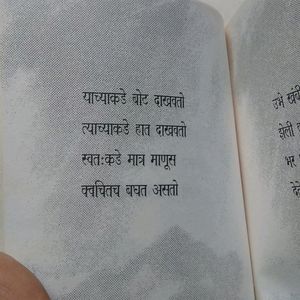 याच्याकडे बोट दाखवतो
त्याच्याकडे हात दाखवतो
स्वतःकडे मात्र माणूस
क्वचितच बघत असतो
उभे
झेली
भर